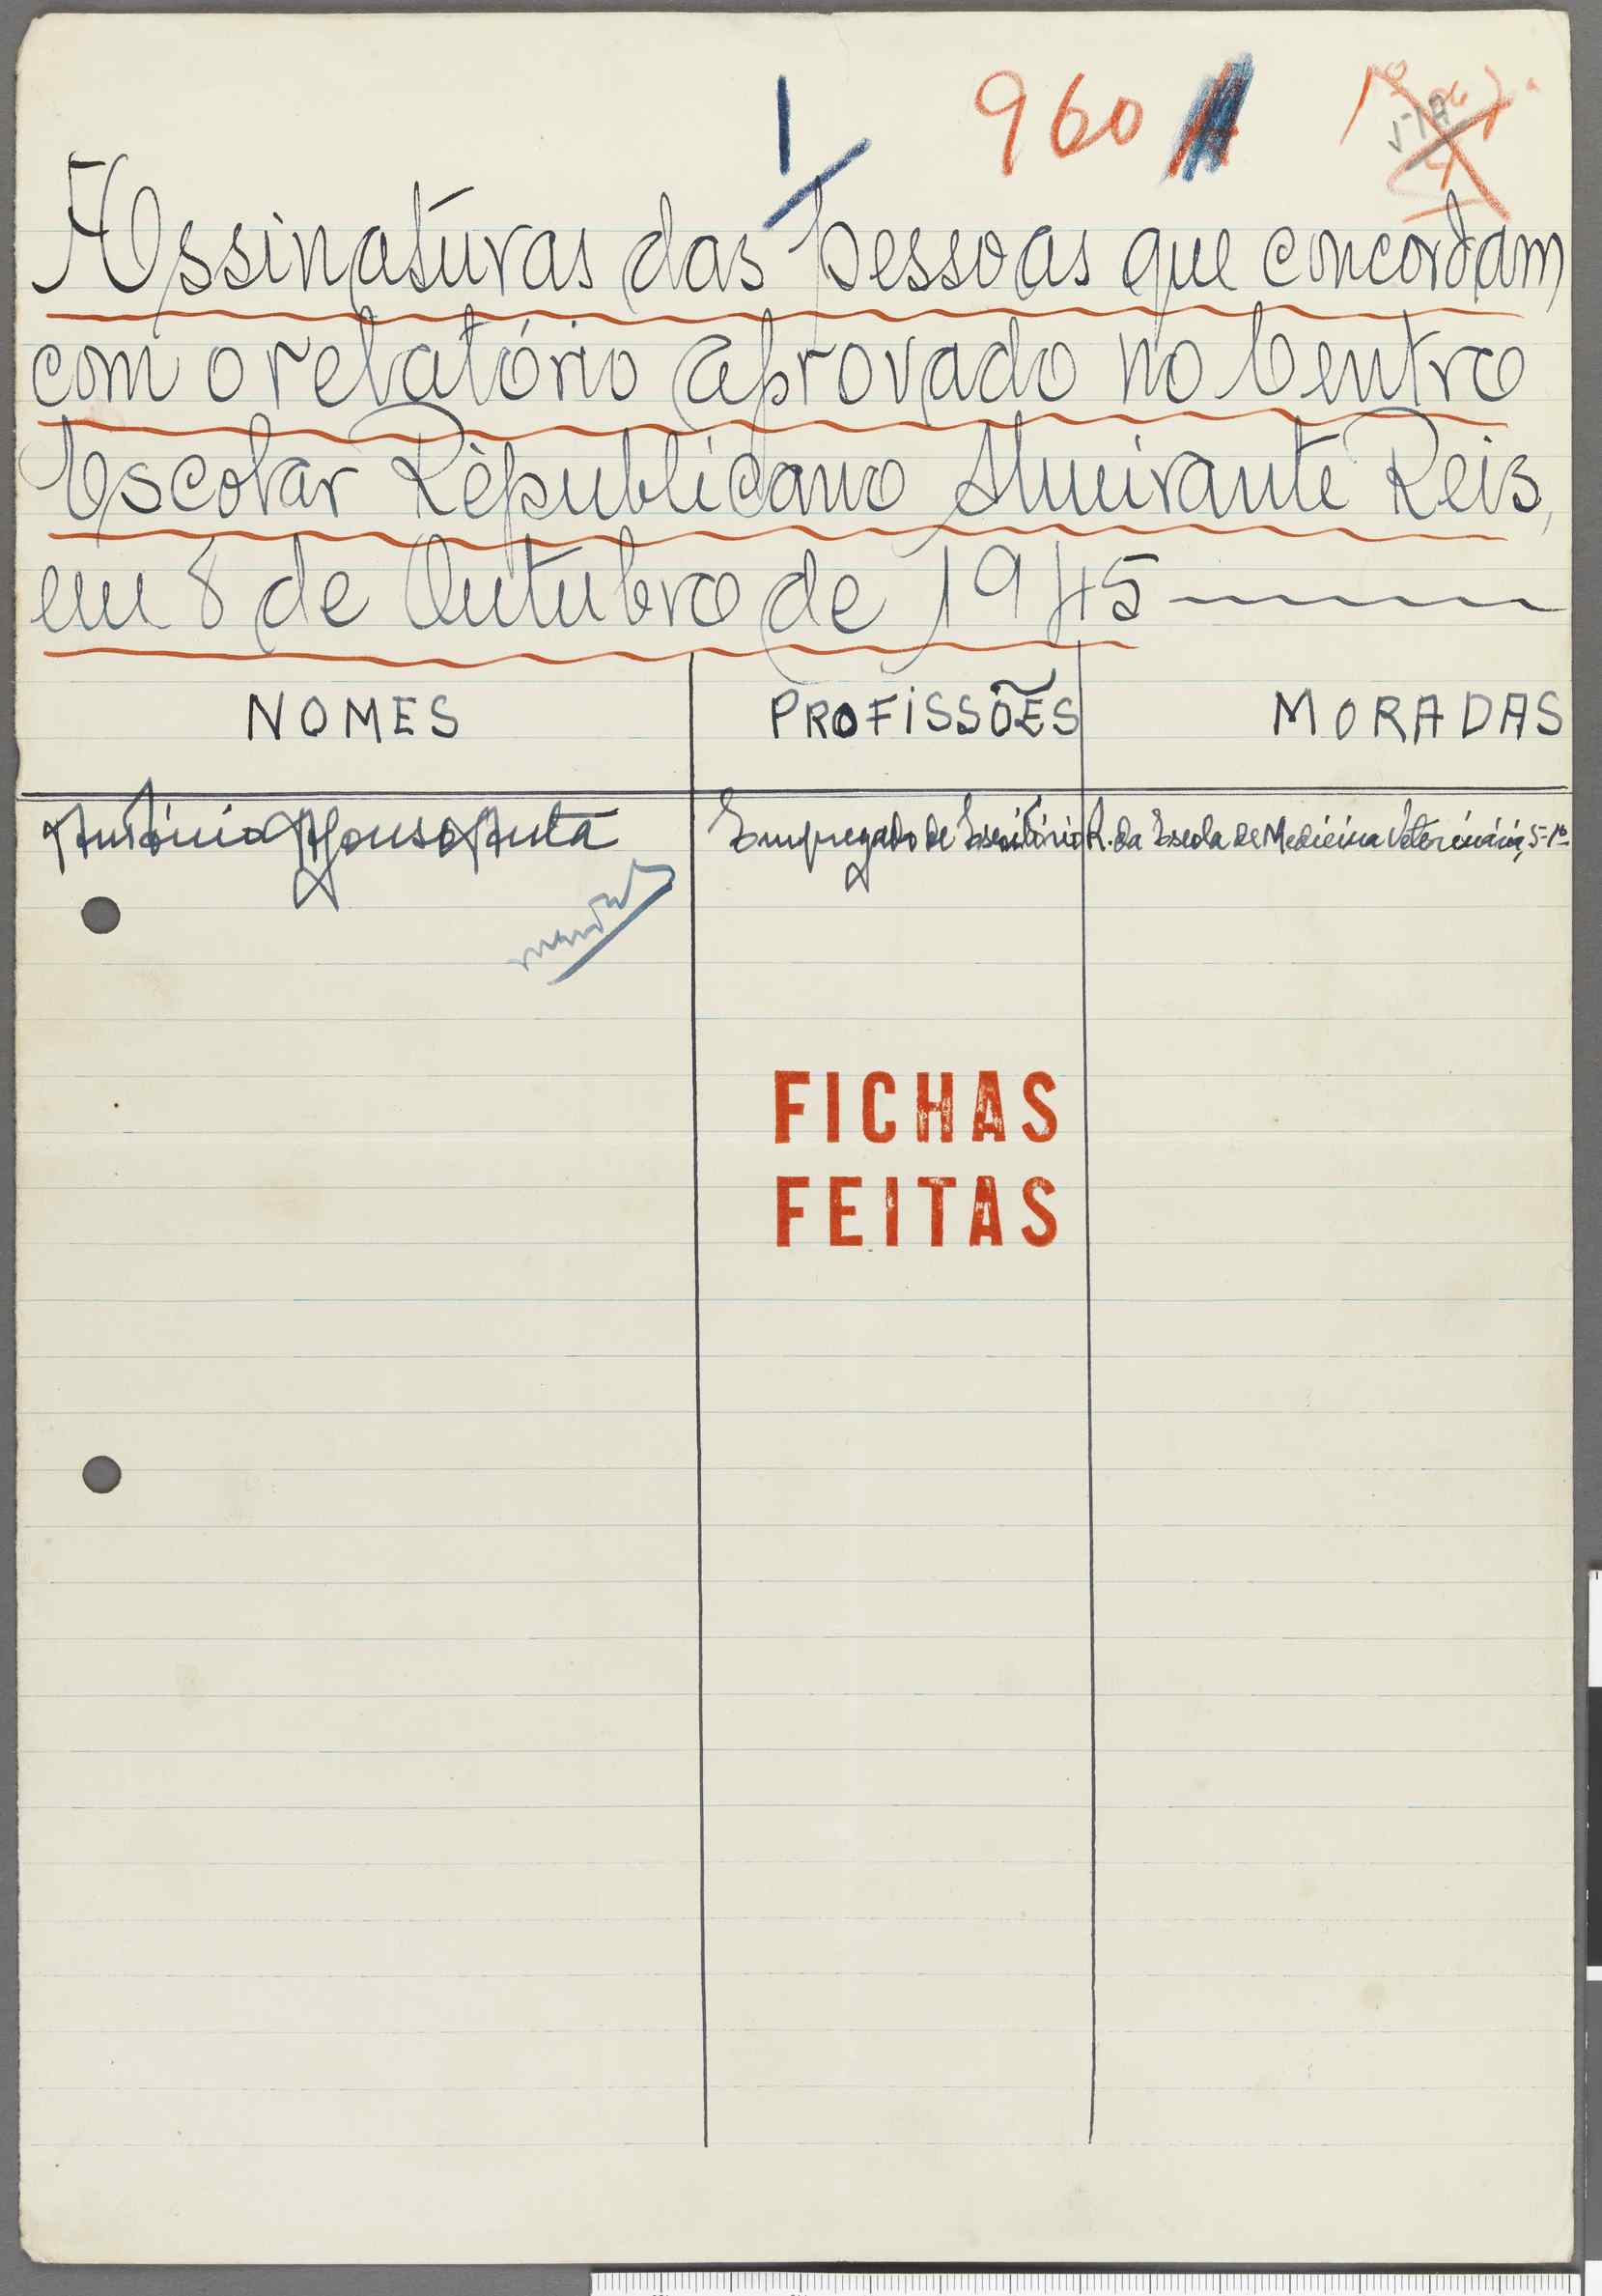 1
960
Assinaturas das pessoas que concordam
com o relatório aprovado no Centro
Escolar Rèpublicano Almirante Reis,
em 8 de Outubro de 1945
NOMES PROFISSÕES MORADAS
António Afonso Anta Empregado de Escritório R. da Escola de Medicina Veterinária, 5-1º
FICHAS
FEITAS